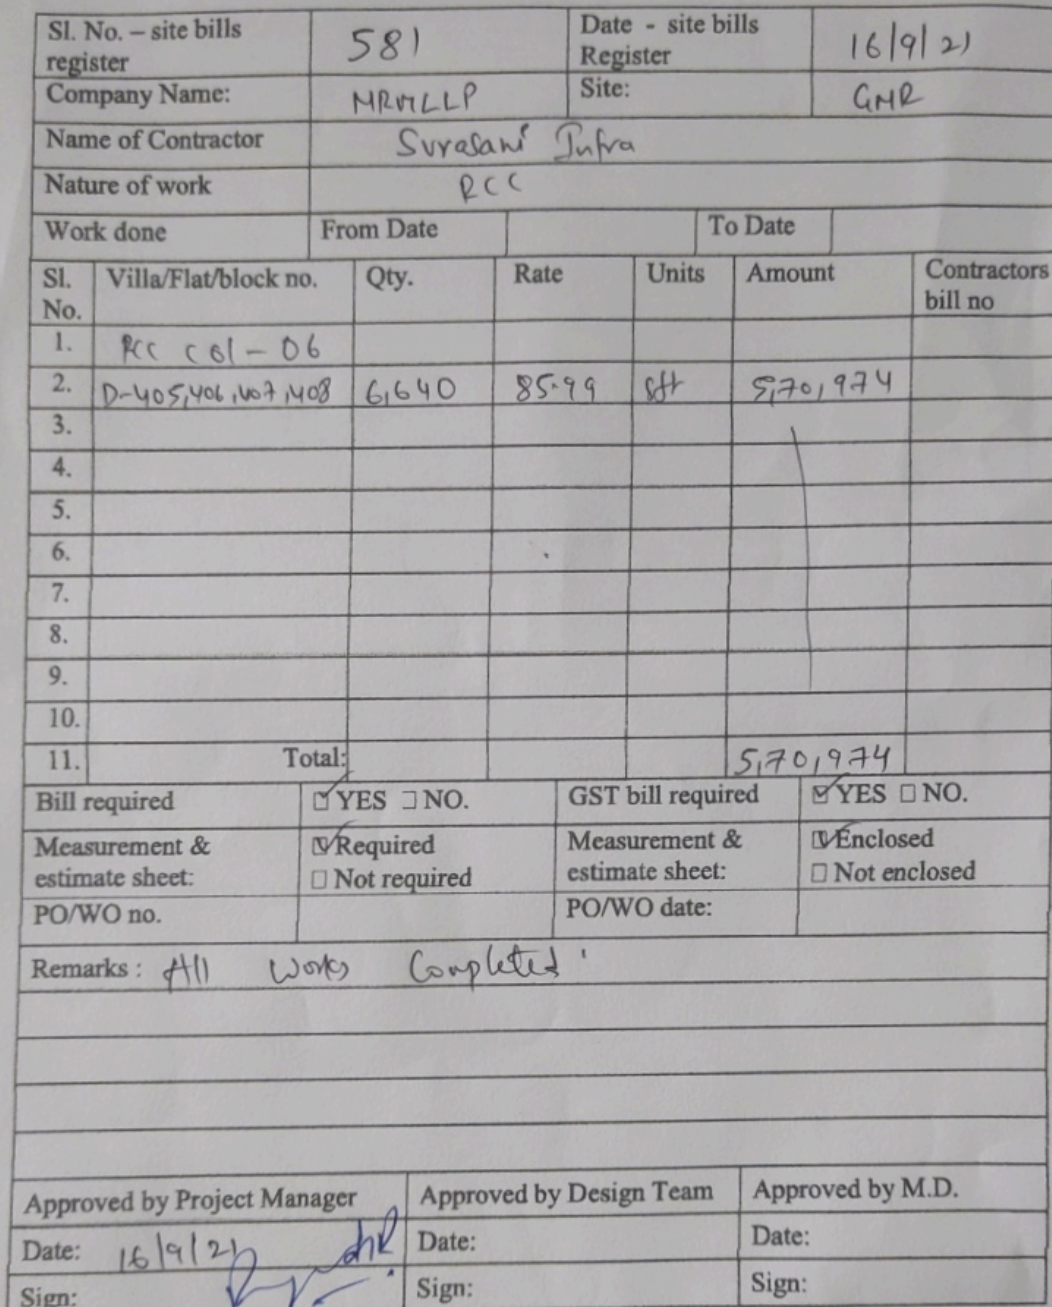 Sl. No. – site bills register 581 Date - site bills Register 16/9/21
Company Name: MRMLLP Site: GMR
Name of Contractor Surasani Infra
Nature of work RCC
Work done From Date To Date
Sl. No. Villa/Flat/block no. Qty. Rate Units Amount Contractors bill no
1. RCC C01-06
2. D-405,406,407,408 6,640 85.99 sft 5,70,974
3.
4.
5.
6.
7.
8.
9.
10.
11. Total: 5,70,974
Bill required ☑ YES ☐ NO. GST bill required ☑ YES ☐ NO.
Measurement & estimate sheet: ☑ Required ☐ Not required Measurement & estimate sheet: ☑ Enclosed ☐ Not enclosed
PO/WO no. PO/WO date:
Remarks : All Works Completed
Approved by Project Manager Approved by Design Team Approved by M.D.
Date: 16/9/21 Date: Date:
Sign: Sign: Sign: